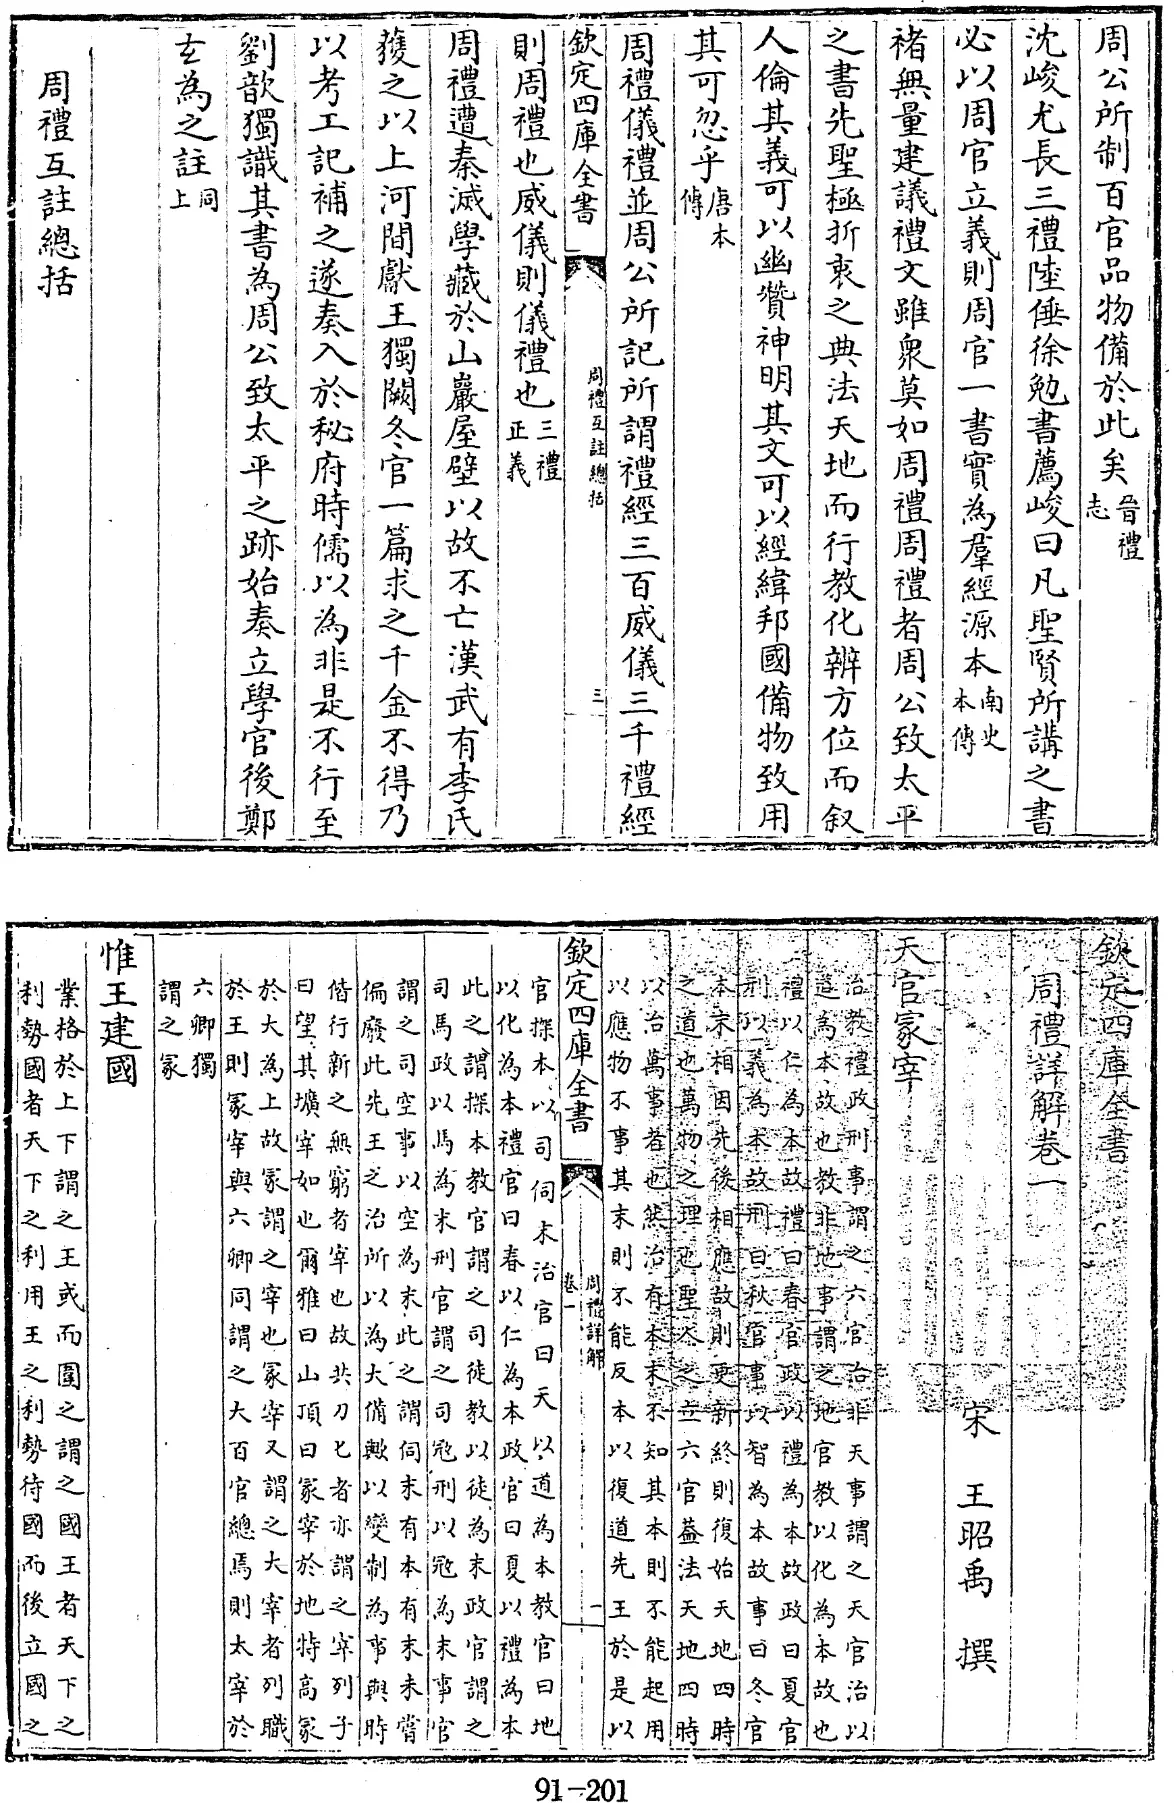 周公所制百官品物備於此矣晉禮志
沈峻尤長三禮陸倕徐勉書薦峻曰凡聖賢所講之書
必以周官立義則周官一書實為羣經源本南史本傳
褚無量建議禮文雖衆莫如周禮周禮者周公致太平
之書先聖極折衷之典法天地而行教化辨方位而叙
人倫其義可以幽贊神明其文可以經緯邦國備物致用
其可忽乎唐本傳
周禮儀禮並周公所記所謂禮經三百威儀三千禮經
欽定四庫全書 周禮互註總括 三
則周禮也威儀則儀禮也三禮正義
周禮遭秦滅學藏於山巖屋壁以故不亡漢武有李氏
獲之以上河間獻王獨闕冬官一篇求之千金不得乃
以考工記補之遂奏入於秘府時儒以為非是不行至
劉歆獨識其書為周公致太平之跡始奏立學官後鄭
玄為之註同上
周禮互註總括
欽定四庫全書
周禮詳解卷一
宋 王昭禹 撰
天官冢宰
治教禮政刑事謂之六官治非天事謂之天官治以
道為本故也教非地事謂之地官教以化為本故也
禮以仁為本故禮曰春官政以禮為本故政曰夏官
刑以義為本故刑曰秋官事以智為本故事曰冬官
本末相因先後相應故則更新終則復始天地四時
之道也萬物之理也聖人之立六官蓋法天地四時
以治萬事者也然治有本末不知其本則不能起用
以應物不事其末則不能反本以復道先王於是以
欽定四庫全書 周禮詳解 卷一 一
官探本以司伺末治官曰天以道為本教官曰地
以化為本禮官曰春以仁為本政官曰夏以禮為本
此之謂探本教官謂之司徒教以徒為末政官謂之
司馬政以馬為末刑官謂之司冦刑以冦為末事官
謂之司空事以空為末此之謂伺末有本有末未嘗
偏廢此先王之治所以為大備歟以變制為事與時
偕行新之無窮者宰也故共刀匕者亦謂之宰列子
曰望其壙宰如也爾雅曰山頂曰冢宰於地特高冢
於大為上故冢謂之宰也冢宰又謂之大宰者列職
於王則冢宰與六卿同謂之大百官總焉則太宰於
六卿獨
謂之冢
惟王建國
業格於上下謂之王或而圍之謂之國王者天下之
利勢國者天下之利用王之利勢待國而後立國之
91-201